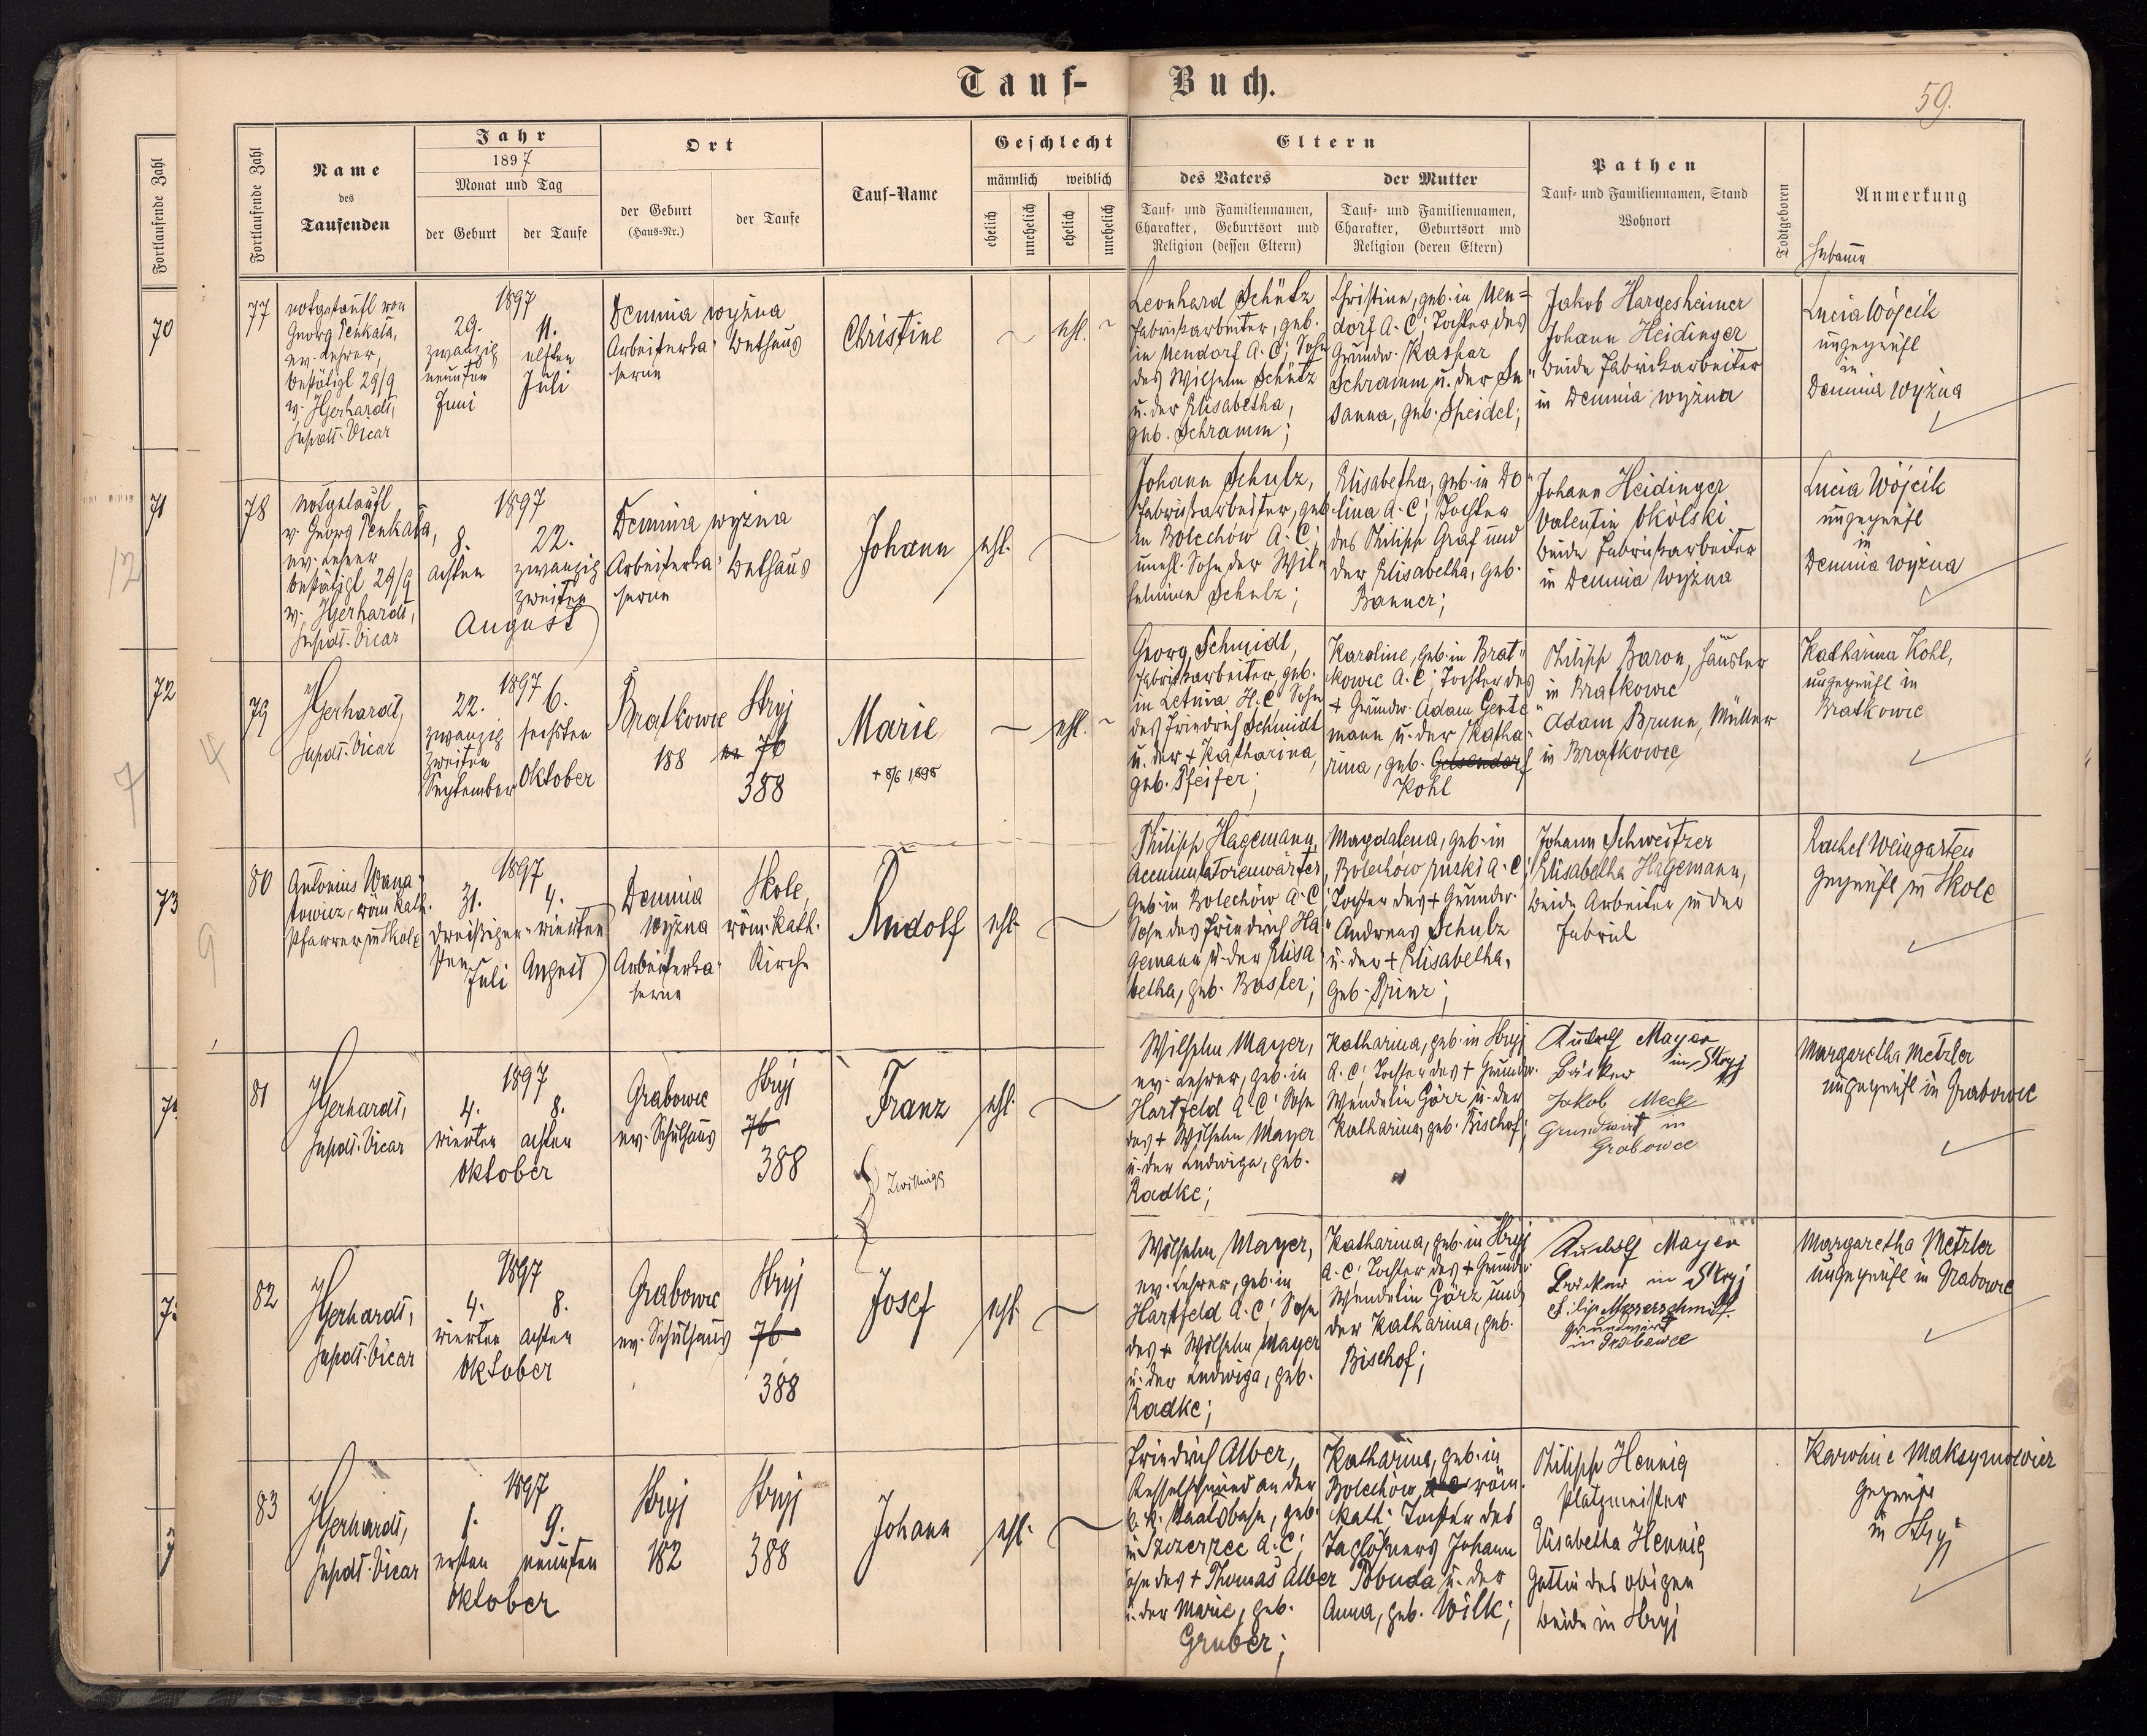 Tauf-Buch.
59.
Fortlaufende Zahl
Fortlaufende Zahl
Name
des
Taufenden
Jahr
1897
Monat und Tag
der Geburt
der Taufe
Ort
der Geburt
(Haus-Nr.)
der Taufe
Tauf-Name
Geschlecht
männlich
weiblich
ehelich
unehelich
ehelich
unehelich
Eltern
des Vaters
Tauf- und Familiennamen,
Charakter, Geburtsort und
Religion (dessen Eltern)
der Mutter
Tauf- und Familiennamen,
Charakter, Geburtsort und
Religion (deren Eltern)
Pathen
Tauf- und Familiennamen, Stand
Wohnort
Todtgeboren
Anmerkung
Hebamme
70
71
12
72
7
4
73
9
77
notgetauft von
Georg Penkala,
ev. Lehrer,
bestätigt 29/9
v. JGerhardt,
Supdt. Vicar
1897
29.
zwanzig
neunten
Juni
11.
elften
Juli
Demnia wyżna
Arbeiterka-
serne
Bethaus
Christine
ehl.
Leonhard Schütz
Fabriksarbeiter, geb.
in Neudorf A. C; Sohn
des Wilhelm Schütz
u. der Elisabetha,
geb. Schramm;
Christine, geb. in Neu=
dorf A. C; Tochter des
Grundw. Kaspar
Schramm u. der Su
sanna, geb. Speidel;
Jakob Hargesheimer
Johann Heidinger
beide Fabriksarbeiter
in Demnia wyżna
Lucia Wójcik
ungeprüft
in
Demnia wyżna
78
Notgetauft
v. Georg Penkala,
ev. Lehrer
bestätigt 29/9
v. JGerhardt,
Supdt. Vicar
1897
8.
achten
22.
zwanzig
zweiten
August
Demnia wyżna
Arbeiterka-
serne
Bethaus
Johann
ehl.
Johann Schulz,
Fabriksarbeiter, geb.
in Bolechów A. C;
unehl. Sohn der Wil-
helmine Schulz;
Elisabetha, geb. in Do-
lina A. C; Tochter
des Philipp Graf und
der Elisabetha, geb.
Banner;
Johann Heidinger
Valentin Okólski
beide Fabriksarbeiter
in Demnia wyżna
Lucia Wójcik
ungeprüft
in
Demnia wyżna
79
JGerhardt,
Supdt. Vicar
1897
22.
zwanzig
zweiten
September
6.
sechsten
Oktober
Bratkowce
188
Stryj
76
388
Marie
+ 8/6 1898
ehl.
Georg Schmidt,
Fabriksarbeiter, geb.
in Letnia, H. C; Sohn
des Friedrich Schmidt
u. der + Katharina,
geb. Pfeifer;
Karoline, geb. in Brat-
kowce A. C; Tochter des
+ Grundw. Adam Gente
mann u. der Katha-
rina, geb. Gelsendorf
Kohl
Philipp Baron, Häusler
in Bratkowce
Adam Brunn, Müller
in Bratkowce
Katharina Kohl,
ungeprüft in
Bratkowce
80
Antonius Wana-
towicz, röm. kath.
Pfarrer in Skole
1897
31.
dreißiger-
sten
Juli
4.
vierten
August
Demnia
wyżna
Arbeiterka-
serne
Skole,
röm. kath.
Kirche
Rudolf
ehl.
Philipp Hagemann,
Accumulatorenwärter,
geb. in Bolechów A. C;
Sohn des Friedrich Ha
gemann u. der Elisa
betha, geb. Basler;
Magdalena, geb. in
Bolechów ruski A. C;
Tochter des + Grundw.
Andreas Schulz
u. der + Elisabetha,
geb. Prinz;
Johann Schweitzer
Elisabetha Hagemann,
beide Arbeiter in der
Fabrik
Rachel Weingarten
geprüft in Skole
81
JGerhardt,
Supdt. Vicar
1897
4.
vierten
8.
achten
Oktober
Grabowce
ev. Schulhaus
Stryj
76
388
Franz
Zwillinge
ehl.
Wilhelm Mayer,
ev. Lehrer, geb. in
Hartfeld A. C; Sohn
des + Wilhelm Mayer
u. der Ludwiga, geb.
Radke;
Katharina, geb. in Stryj
A. C; Tochter des + Grundw.
Wendelin Görz u. der
Katharina, geb. Bischof;
Rudolf Mayer
Bäcker in Stryj
Jakob Meck
Grundwirt in
Grabowce
Margaretha Metzler
ungeprüft in Grabowce
82
JGerhardt,
Supdt. Vicar
1897
4.
vierten
8.
achten
Oktober
Grabowce
ev. Schulhaus
Stryj
76
388
Josef
ehl.
Wilhelm Mayer,
ev. Lehrer, geb. in
Hartfeld A. C; Sohn
des + Wilhelm Mayer
u. der Ludwiga, geb.
Radke;
Katharina, geb. in Stryj
A. C; Tochter des + Grundw.
Wendelin Görz und
der Katharina, geb.
Bischof;
Rudolf Mayer
Bäcker in Stryj
Messerschmidt
Grundwirt
in Grabowce
Margaretha Metzler
ungeprüft in Grabowce
83
JGerhardt,
Supdt. Vicar
1897
1.
ersten
9.
neunten
Oktober
Stryj
182
Stryj
388
Johann
ehl.
Friedrich Alber,
Kesselschmied an der
k. k. Staatsbahn, geb.
in Szczerzec A. C;
Sohn des + Thomas Alber
u. der Marie, geb.
Gruber;
Katharina, geb. in
Bolechów röm.
kath. Tochter des
Taglöhners Johann
Pobuda u. der
Anna, geb. Wilk;
Philipp Hennig
Platzmeister
Elisabetha Hennig
Gattin des obigen
beide in Stryj
Karoline Maksymowicz
geprüft
in Stryj